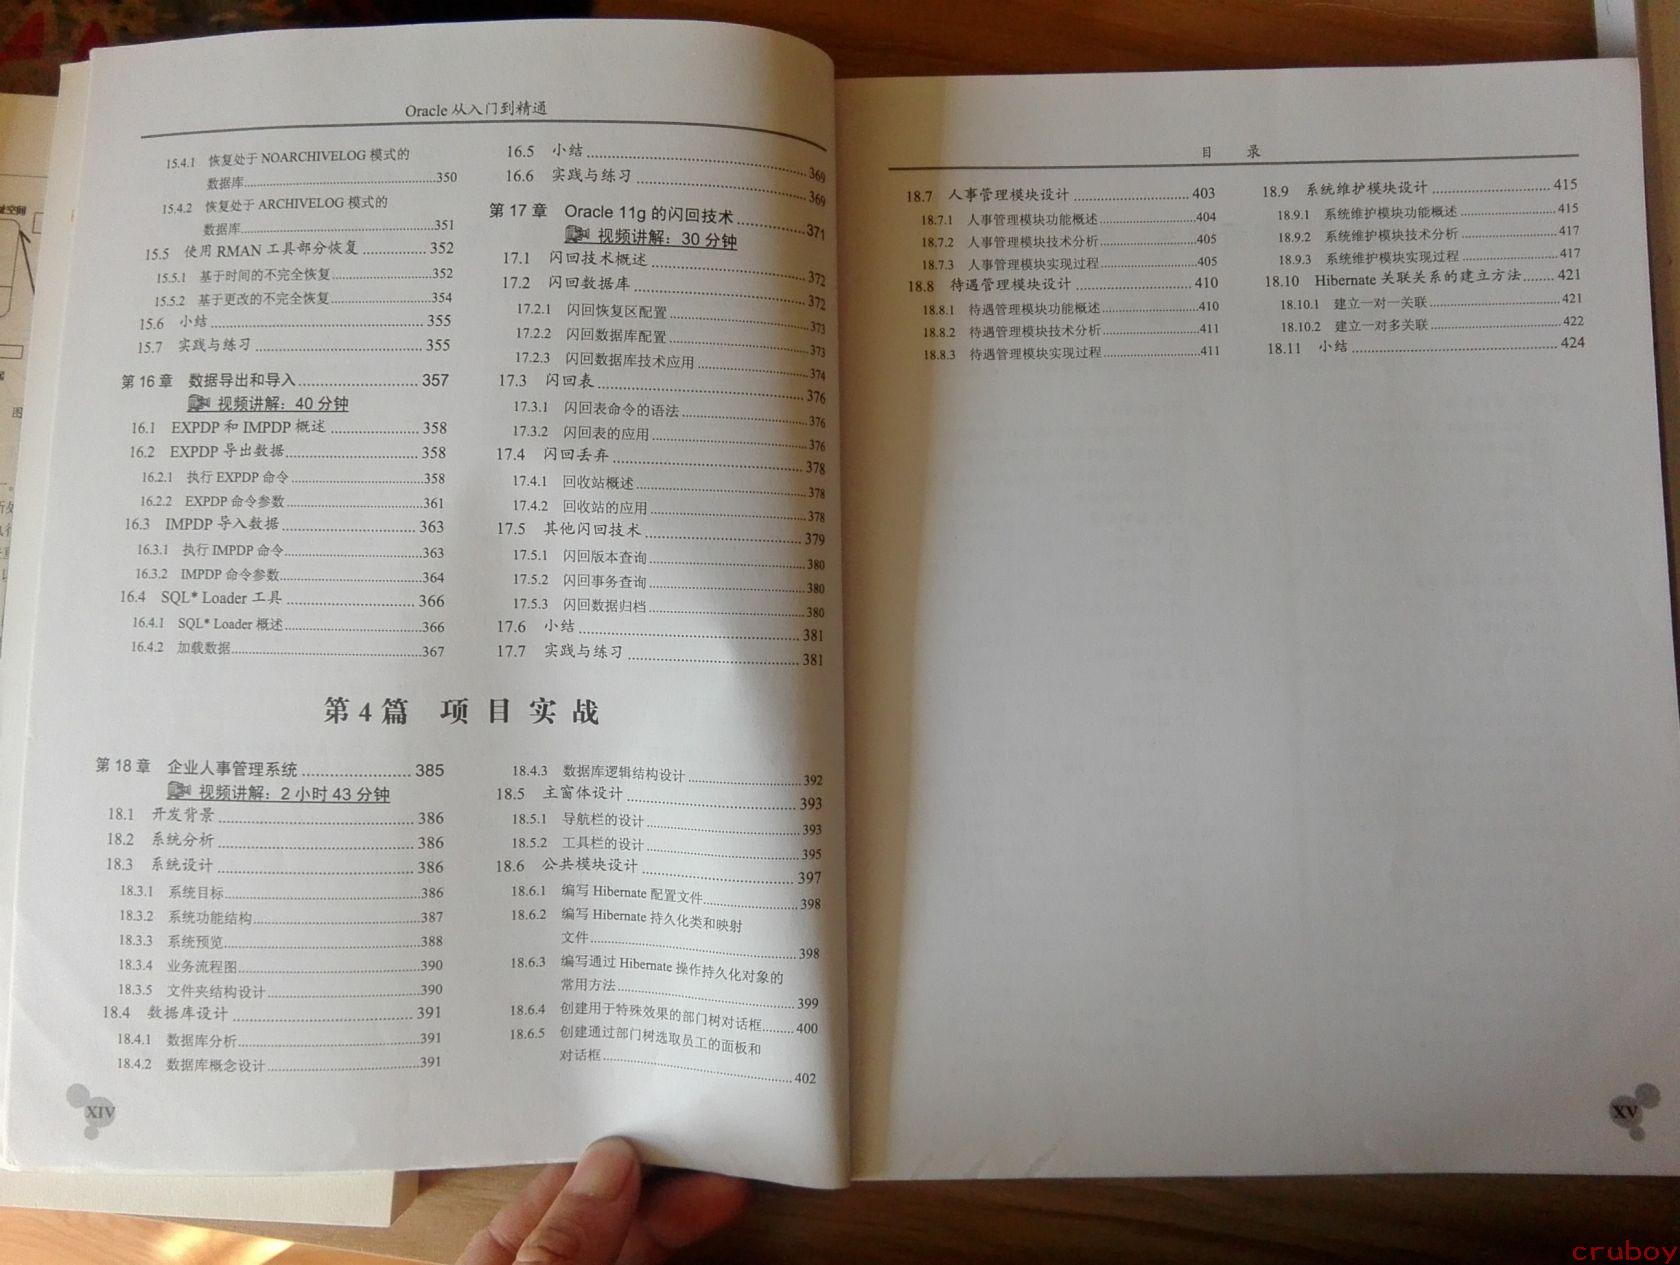 Oracle 从入门到精通
15.4.1 恢复处于 NOARCHIVELOG 模式的
数据库 350
15.4.2 恢复处于 ARCHIVELOG 模式的
数据库 351
15.5 使用 RMAN 工具部分恢复 352
15.5.1 基于时间的不完全恢复 352
15.5.2 基于更改的不完全恢复 354
15.6 小结 355
15.7 实践与练习 355
第 16 章 数据导出和导入 357
视频讲解：40 分钟
16.1 EXPDP 和 IMPDP 概述 358
16.2 EXPDP 导出数据 358
16.2.1 执行 EXPDP 命令 358
16.2.2 EXPDP 命令参数 361
16.3 IMPDP 导入数据 363
16.3.1 执行 IMPDP 命令 363
16.3.2 IMPDP 命令参数 364
16.4 SQL* Loader 工具 366
16.4.1 SQL* Loader 概述 366
16.4.2 加载数据 367
16.5 小结 369
16.6 实践与练习 369
第 17 章 Oracle 11g 的闪回技术 371
视频讲解：30 分钟
17.1 闪回技术概述 372
17.2 闪回数据库 372
17.2.1 闪回恢复区配置 373
17.2.2 闪回数据库配置 373
17.2.3 闪回数据库技术应用 374
17.3 闪回表 376
17.3.1 闪回表命令的语法 376
17.3.2 闪回表的应用 376
17.4 闪回丢弃 378
17.4.1 回收站概述 378
17.4.2 回收站的应用 378
17.5 其他闪回技术 379
17.5.1 闪回版本查询 380
17.5.2 闪回事务查询 380
17.5.3 闪回数据归档 380
17.6 小结 381
17.7 实践与练习 381
第 4 篇 项目实战
第 18 章 企业人事管理系统 385
视频讲解：2 小时 43 分钟
18.1 开发背景 386
18.2 系统分析 386
18.3 系统设计 386
18.3.1 系统目标 386
18.3.2 系统功能结构 387
18.3.3 系统预览 388
18.3.4 业务流程图 390
18.3.5 文件夹结构设计 390
18.4 数据库设计 391
18.4.1 数据库分析 391
18.4.2 数据库概念设计 391
18.4.3 数据库逻辑结构设计 392
18.5 主窗体设计 393
18.5.1 导航栏的设计 393
18.5.2 工具栏的设计 395
18.6 公共模块设计 397
18.6.1 编写 Hibernate 配置文件 398
18.6.2 编写 Hibernate 持久化类和映射
文件 398
18.6.3 编写通过 Hibernate 操作持久化对象的
常用方法 399
18.6.4 创建用于特殊效果的部门树对话框 400
18.6.5 创建通过部门树选取员工的面板和
对话框 402
XIV
目 录
18.7 人事管理模块设计 403
18.7.1 人事管理模块功能概述 404
18.7.2 人事管理模块技术分析 405
18.7.3 人事管理模块实现过程 405
18.8 待遇管理模块设计 410
18.8.1 待遇管理模块功能概述 410
18.8.2 待遇管理模块技术分析 411
18.8.3 待遇管理模块实现过程 411
18.9 系统维护模块设计 415
18.9.1 系统维护模块功能概述 415
18.9.2 系统维护模块技术分析 417
18.9.3 系统维护模块实现过程 417
18.10 Hibernate 关联关系的建立方法 421
18.10.1 建立一对一关联 421
18.10.2 建立一对多关联 422
18.11 小结 424
XV
cruboy